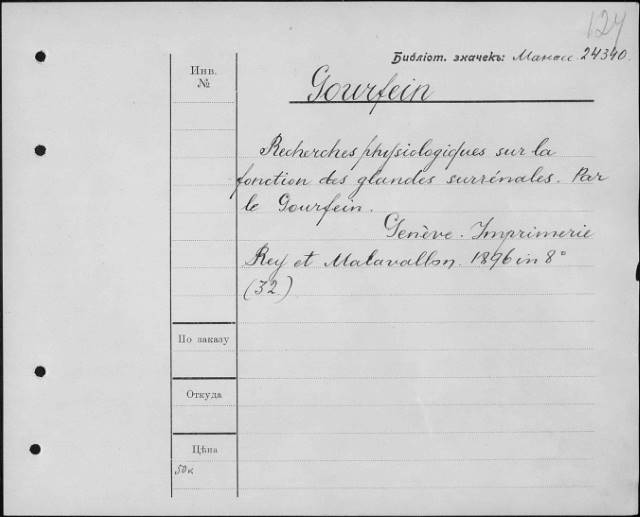 124
Библіот. значекъ: Манасс. 24340.
Инв.
№
Gourfein
Recherches physiologiques sur la
fonction des glandes surrénales. Par
le Gourfein.
Genève. Imprimerie
Rey et Malavallon. 1896 in 8°
(32.)
По заказу
Откуда
Цѣна
50к